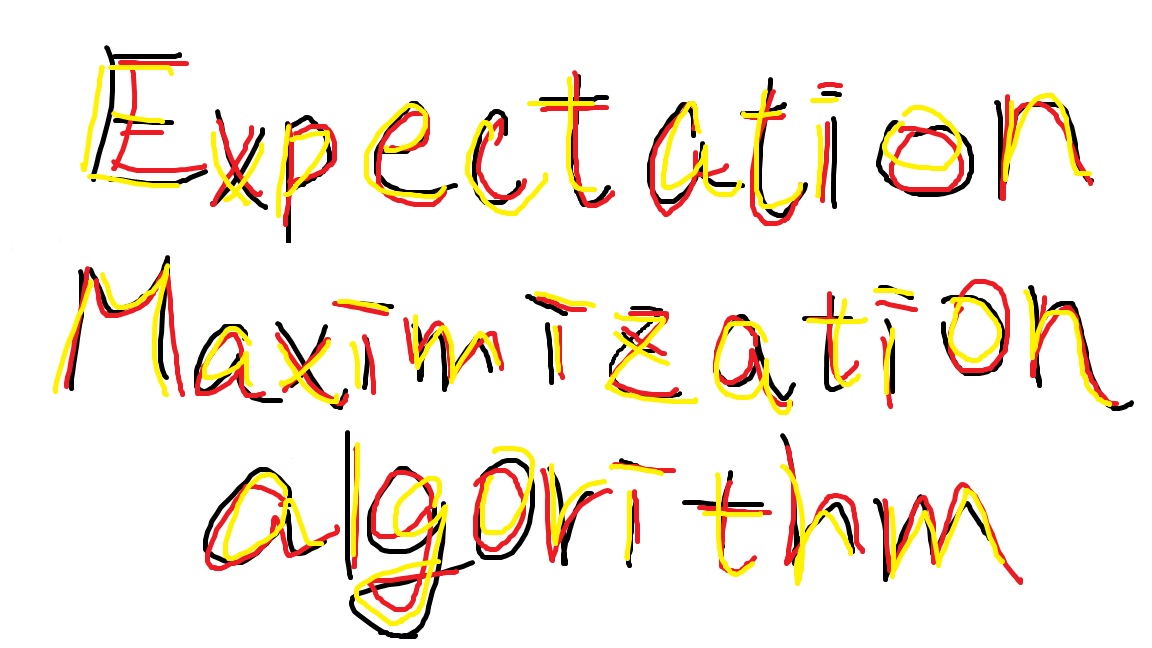 Expectation
Maximization
algorithm